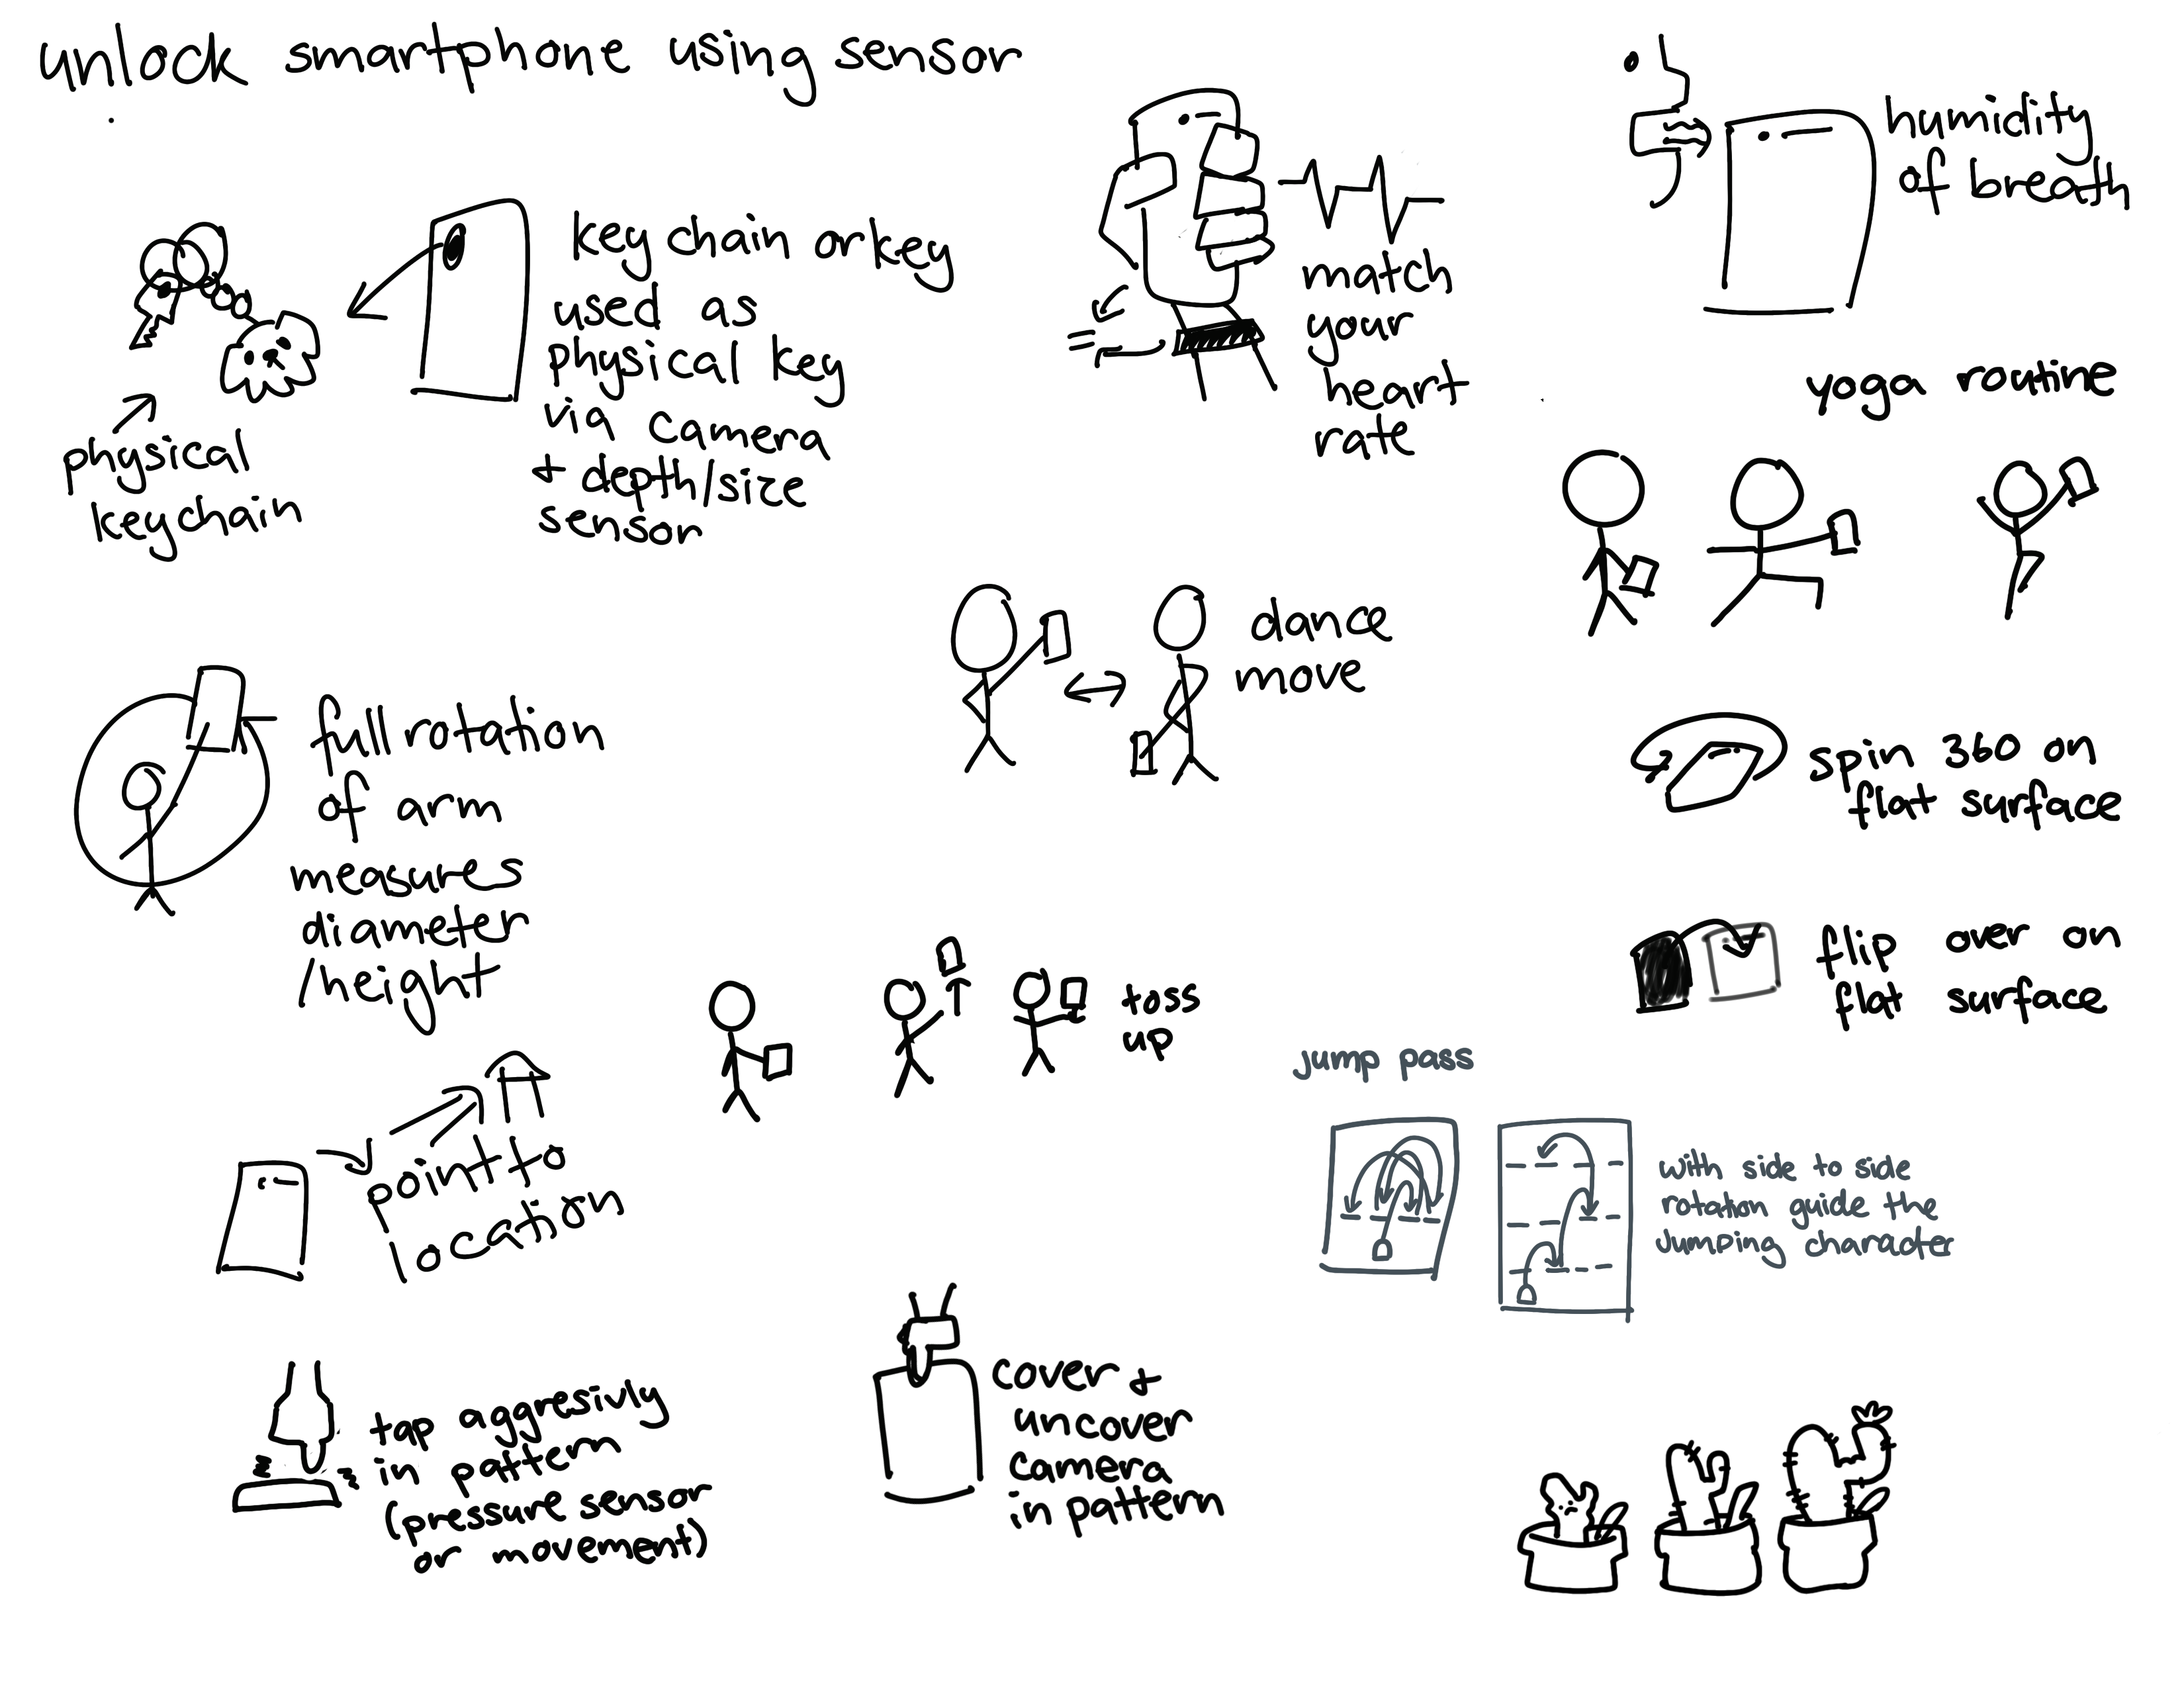 unlock smartphone using sensor
key chain or key
used as
physical key
via camera
+ depth/size
sensor
physical
keychain
match
your
heart
rate
humidity
of breath
yoga routine
dance
move
full rotation
of arm
measures
diameter
/height
spin 360 on
flat surface
flip over on
flat surface
toss
up
point to
location
jump pass
with side to side
rotation guide the
jumping character
tap aggresivly
in pattern
(pressure sensor
or movement)
cover +
uncover
camera
in pattern